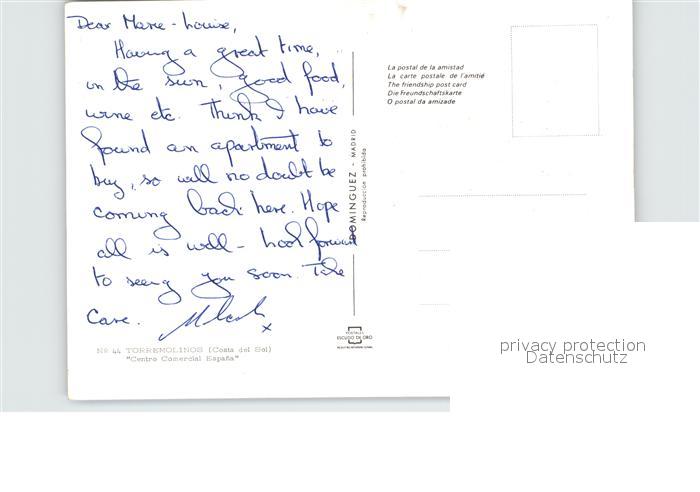 Dear Marie - Louise,
Having a great time,
in the sun, good food,
wine etc. Think I have
found an apartment to
buy, so will no doubt be
coming back here. Hope
all is well - look forward
to seeing you soon. Take
Care.
x
Nº 44 TORREMOLINOS (Costa del Sol)
"Centro Comercial España"
DOMINGUEZ - MADRID
Reproducción prohibida
POSTALES
ESCUDO DE ORO
La postal de la amistad
La carte postale de l'amitié
The friendship post card
Die Freundschaftskarte
O postal da amizade
privacy protection
Datenschutz